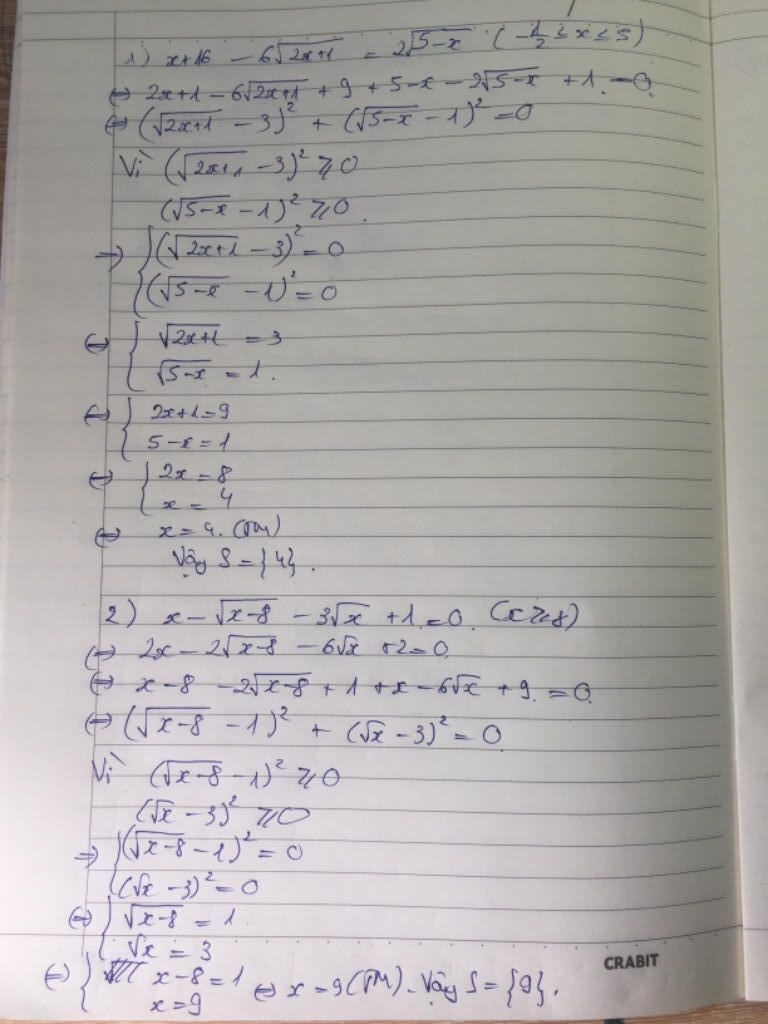 1) x+16 - 6√(2x+1) = 2√(5-x) (-1/2 ≤ x ≤ 5)
⇔ 2x+1 - 6√(2x+1) + 9 + 5-x - 2√(5-x) + 1 = 0
⇔ (√(2x+1) - 3)² + (√(5-x) - 1)² = 0
Vì (√(2x+1) - 3)² ⩾ 0
(√(5-x) - 1)² ⩾ 0.
⇒ { (√(2x+1) - 3)² = 0
(√(5-x) - 1)² = 0
⇔ { √(2x+1) = 3
√(5-x) = 1.
⇔ { 2x+1=9
5-x=1
⇔ { 2x = 8
x = 4
⇔ x = 4. (TM)
Vậy S = {4}.
2) x - √(x-8) - 3√x + 1 = 0 (x ⩾ 8)
⇔ 2x - 2√(x-8) - 6√x + 2 = 0
⇔ x - 8 - 2√(x-8) + 1 + x - 6√x + 9 = 0
⇔ (√(x-8) - 1)² + (√x - 3)² = 0
Vì (√(x-8) - 1)² ⩾ 0
(√x - 3)² ⩾ 0
⇒ { (√(x-8) - 1)² = 0
(√x - 3)² = 0
⇔ { √(x-8) = 1
√x = 3
⇔ { x-8=1 ⇔ x = 9 (TM). Vậy S = {9}.
x=9
CRABIT